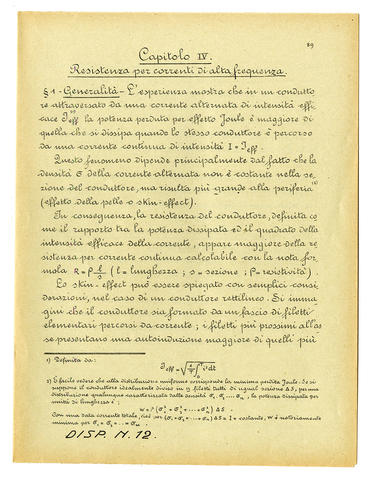 89
Capitolo IV.
Resistenza per correnti di alta frequenza.
§ 1 - Generalità - L'esperienza mostra che in un condutto
re attraversato da una corrente alternata di intensità effi-
cace Ieff¹⁾ la potenza perduta per effetto Joule è maggiore di
quella che si dissipa quando lo stesso conduttore è percorso
da una corrente continua di intensità I = Ieff.
Questo fenomeno dipende principalmente dal fatto che la
densità σ della corrente alternata non è costante nella se-
zione del conduttore, ma risulta più grande alla periferia²⁾
(effetto della pelle o skin-effect).
In conseguenza, la resistenza del conduttore, definita co
me il rapporto tra la potenza dissipata ed il quadrato della
intensità efficace della corrente, appare maggiore della re
sistenza per corrente continua calcolabile con la nota for-
mola R = ρ l/s (l = lunghezza ; s = sezione ; ρ = resistività).
Lo skin-effect può essere spiegato con semplici consi
derazioni, nel caso di un conduttore rettilineo. Si imma
gini che il conduttore sia formato da un fascio di filetti
elementari percorsi da corrente ; i filetti più prossimi all'as
se presentano una autoinduzione maggiore di quelli più
1) Definita da :
Ieff = √(1/T ∫₀ᵀ i² dt)
2) È facile vedere che alla distribuzione uniforme corrisponde la minima perdita Joule. Se si
suppone il conduttore idealmente diviso in filetti tutti di ugual sezione ΔS, per una
distribuzione qualunque caratterizzata dalle densità σ₁, σ₂, ... σₙ, la potenza dissipata per
unità di lunghezza è :
w = ρ (σ₁² + σ₂² + ... σₙ²) ΔS.
Con una data corrente totale, cioè per (σ₁ + σ₂ + ... σₙ) ΔS = I = costante, w è notoriamente
minima per σ₁ = σ₂ = ... = σₙ.
DISP. N. 12.